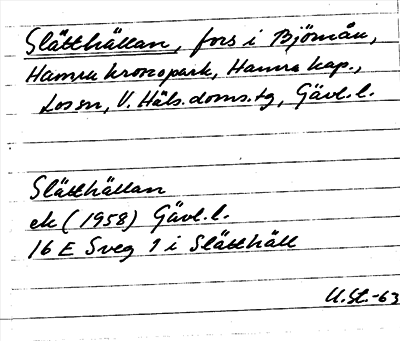 Slätthällan, fors i Björnån,
Hamra kronopark, Hamra kap.,
Los sn, V. Häls. doms. tg, Gävl. l.
Slätthällan
ek (1958) Gävl. l.
16 E Sveg 1 i Slätthäll
U.St.-63